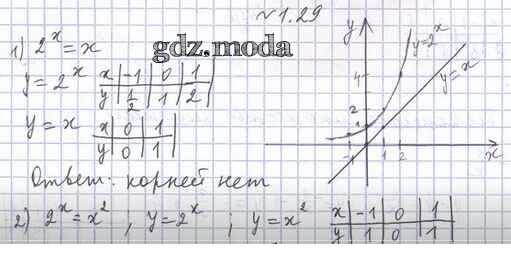 №1.29
1) 2^x = x
gdz.moda
y = 2^x x | -1 | 0 | 1 |
y | 1/2 | 1 | 2 |
y = x x | 0 | 1 |
y | 0 | 1 |
Ответ: корней нет
y
y=2^x
y=x
4
2
1
-1 1 2 x
2) 2^x = x^2 , y = 2^x ; y = x^2 x | -1 | 0 | 1 |
y | 1 | 0 | 1